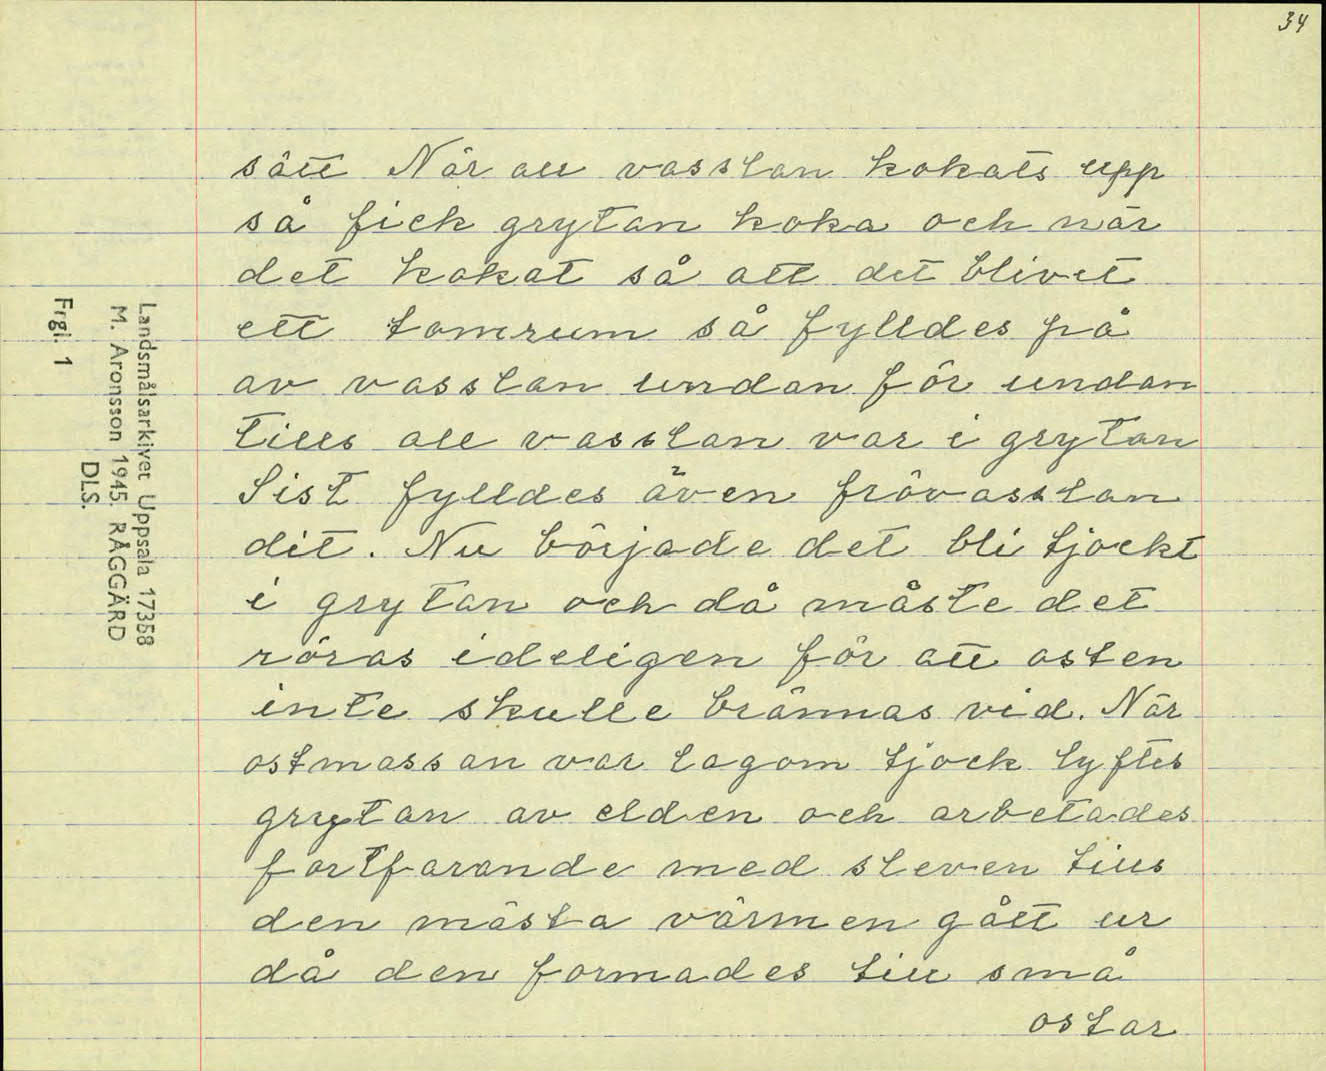 34
sätt När all vasslan kokats upp
så fick grytan koka och när
det kokat så att det blivet
ett tomrum så fylldes på
av vasslan undan för undan
tills all vasslan var i grytan
Sist fylldes även frövasslan
dit. Nu började det bli tjockt
i grytan och då måste det
röras ideligen för att osten
inte skulle brännas vid. När
ostmassan var lagom tjock lyftes
grytan av elden och arbetades
fortfarande med sleven tills
den mästa värmen gått ur
då den formades till små
ostar
Landsmålsarkivet Uppsala 17358
M. Aronsson 1945. RÅGGÄRD
DLS.
Frgl. 1